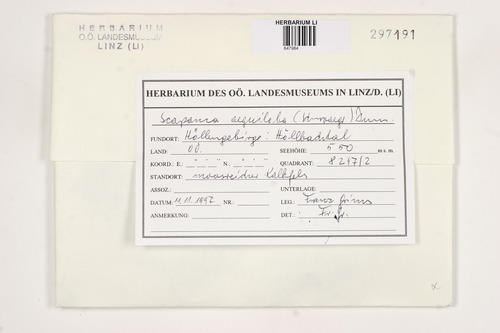 HERBARIUM
O.Ö. LANDESMUSEUM
LINZ (LI)
HERBARIUM LI
647984
297191
HERBARIUM DES OÖ. LANDESMUSEUMS IN LINZ/D. (LI)
Scapania aequiloba (Schwaegr.) Dum.
FUNDORT: Höllengebirge: Höllbachtal
LAND: OÖ. SEEHÖHE: 550 m s. m.
KOORD.: E.: ° ' " N.: ° ' " QUADRANT: 8247/2
STANDORT: moosreicher Kalkfels
ASSOZ.: UNTERLAGE:
DATUM: 11.11.1997 NR.: LEG.: Franz Grims
ANMERKUNG: DET.: Fr. Gr.